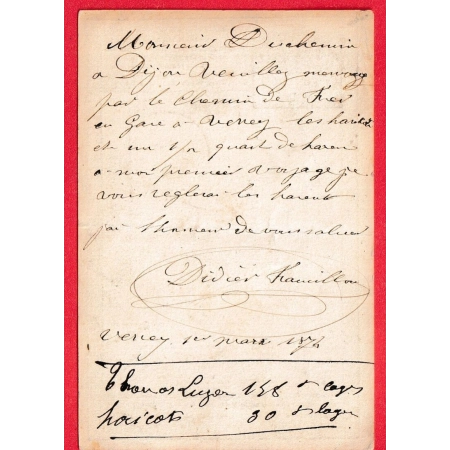 Monsieur Duchemin
a Dijon Veuillez m'envoyez
par le Chemin de Fer
en Gare a Verrey les haricots
et un 1/2 quart de hareng
a mon premier voyage je
vous reglerai les harent
jai lhonneur de vous saluer
Didier
Verrey 1er mars 1874
158
haricots 30